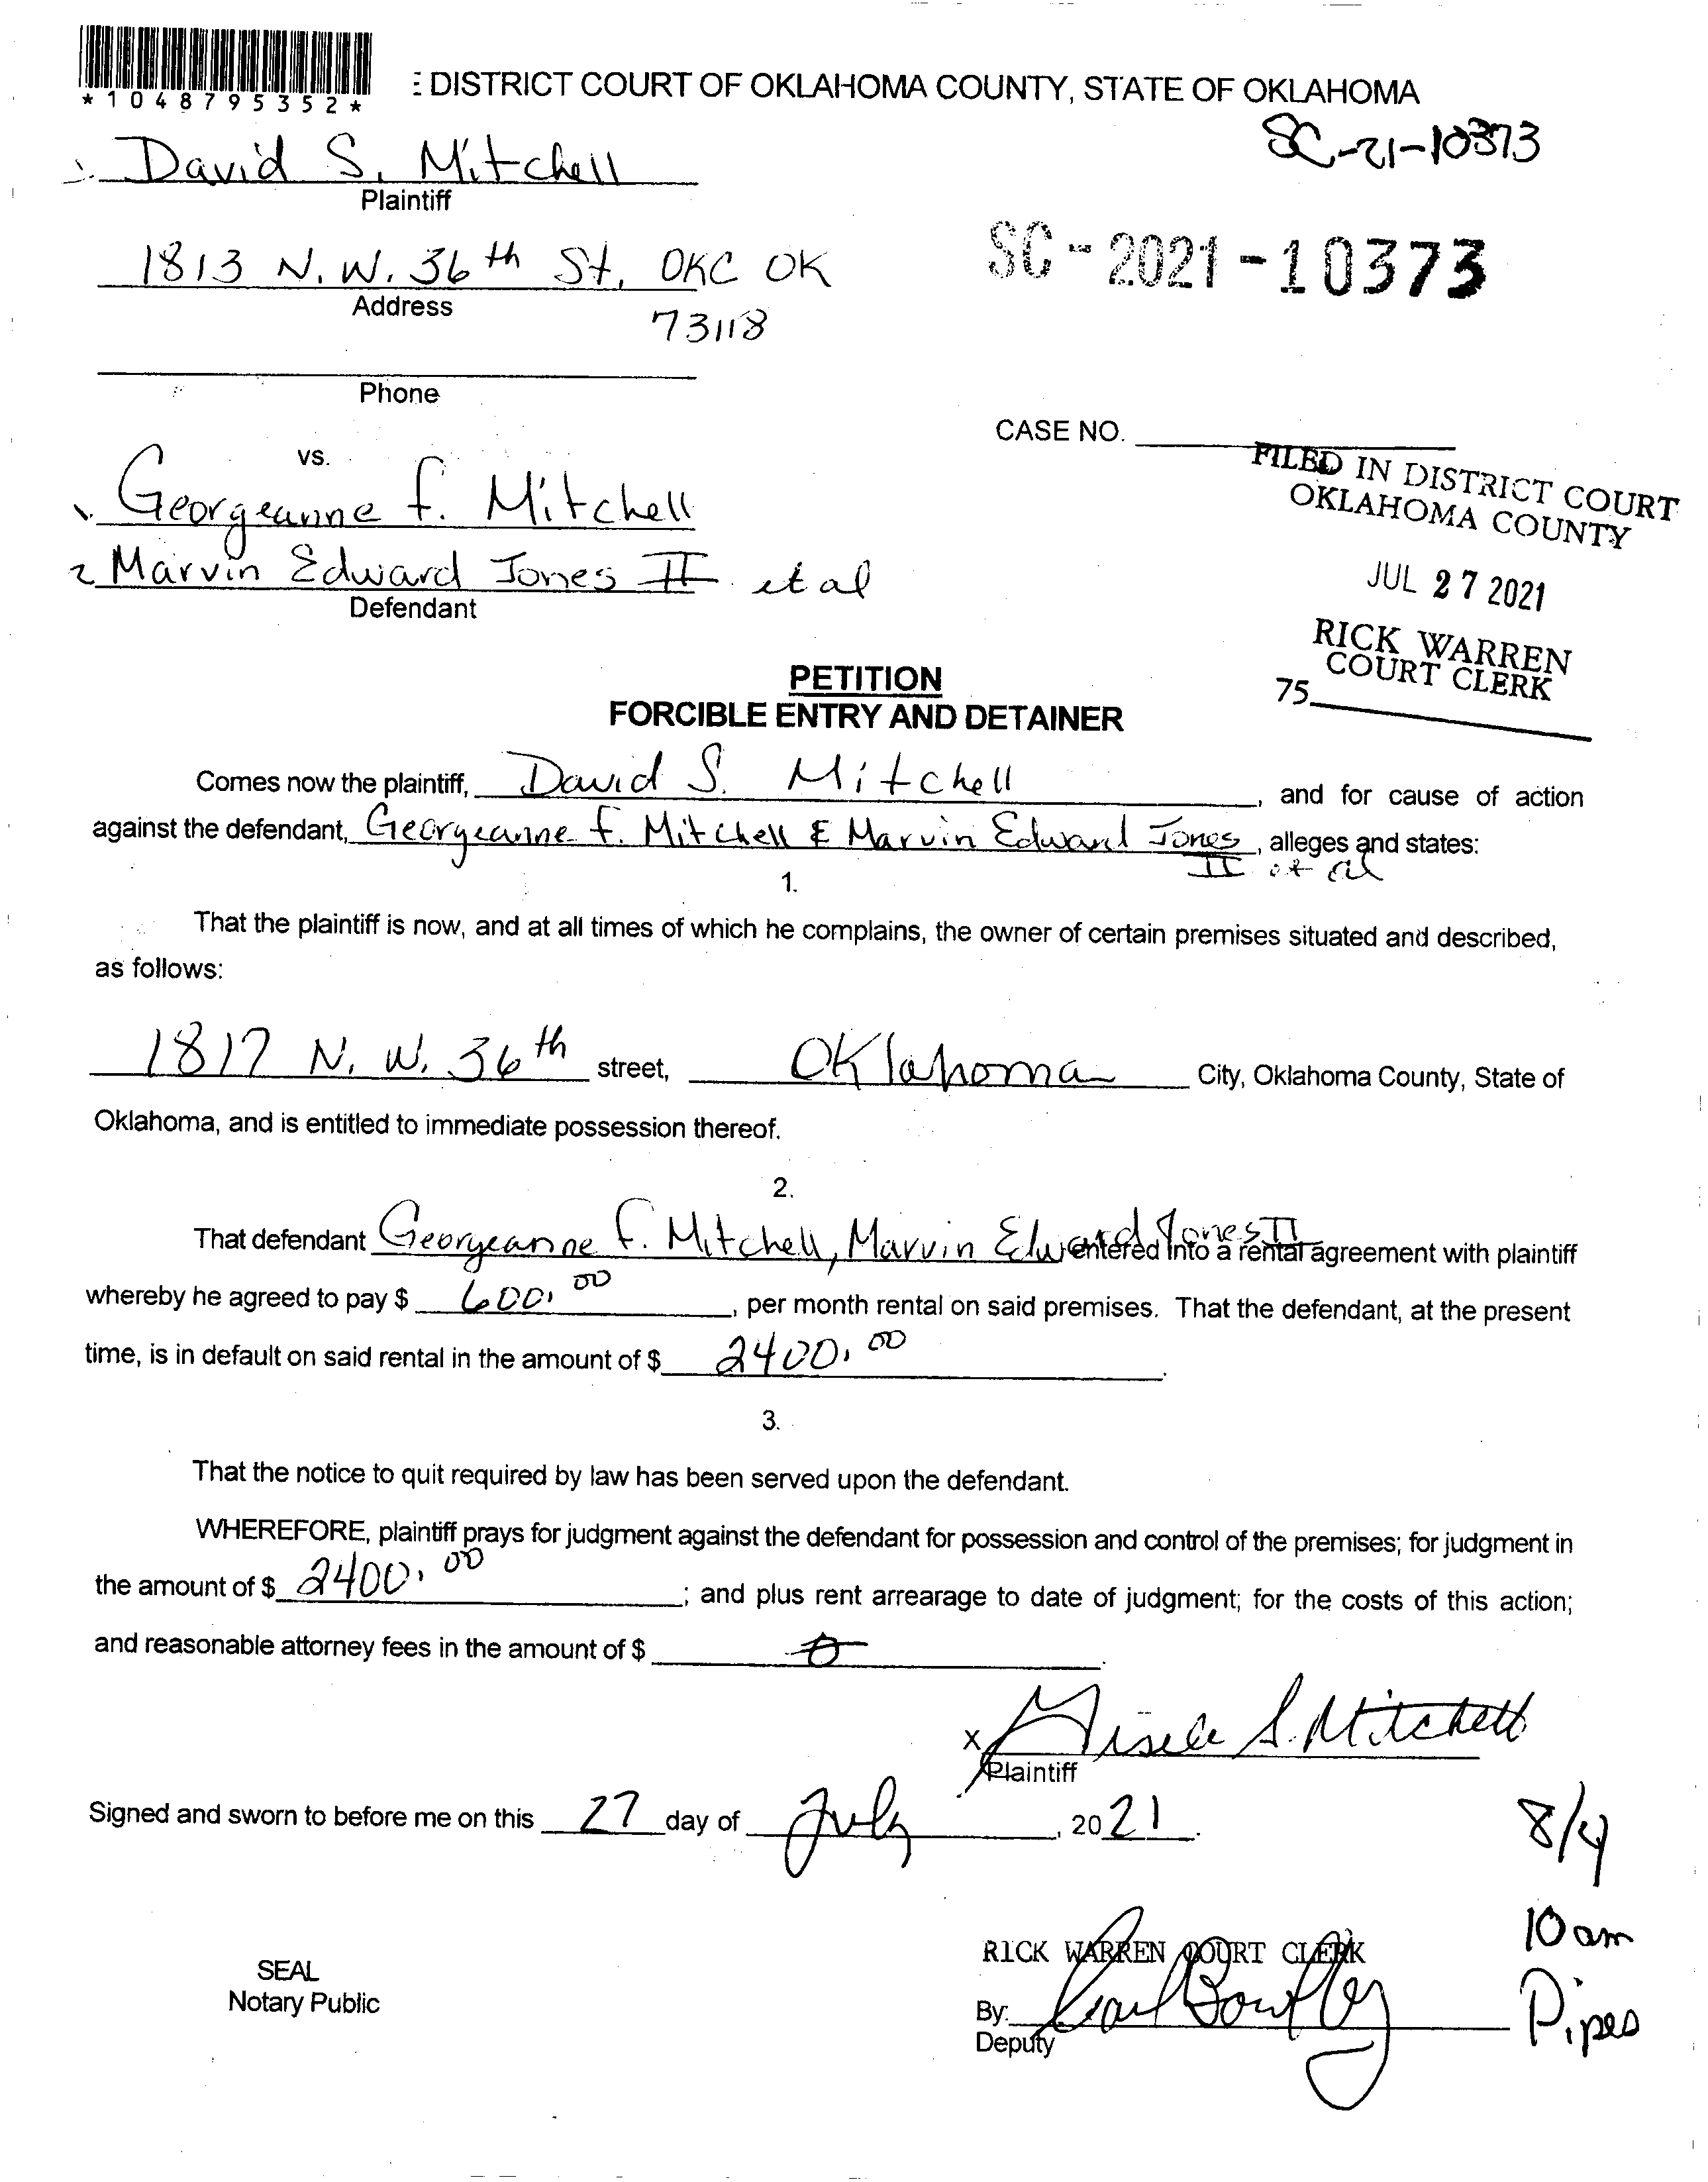 *1048795352*
: DISTRICT COURT OF OKLAHOMA COUNTY, STATE OF OKLAHOMA
SC-21-10373
1. David S. Mitchell
Plaintiff
SC-2021-10373
1813 N.W. 36th St, OKC OK
Address
73118
Phone
CASE NO.
vs.
FILED IN DISTRICT COURT
OKLAHOMA COUNTY
1. Georgeanne F. Mitchell
2 Marvin Edward Jones II et al
Defendant
JUL 27 2021
RICK WARREN
COURT CLERK
75
PETITION
FORCIBLE ENTRY AND DETAINER
Comes now the plaintiff, David S. Mitchell, and for cause of action
against the defendant, Georgeanne F. Mitchell & Marvin Edward Jones, alleges and states:
II et al
1.
That the plaintiff is now, and at all times of which he complains, the owner of certain premises situated and described,
as follows:
1817 N. W. 36th street, Oklahoma City, Oklahoma County, State of
Oklahoma, and is entitled to immediate possession thereof.
2.
That defendant Georgeanne F. Mitchell, Marvin Edward Jones II entered into a rental agreement with plaintiff
whereby he agreed to pay $ 600.00, per month rental on said premises. That the defendant, at the present
time, is in default on said rental in the amount of $ 2400.00.
3.
That the notice to quit required by law has been served upon the defendant.
WHEREFORE, plaintiff prays for judgment against the defendant for possession and control of the premises; for judgment in
the amount of $ 2400.00; and plus rent arrearage to date of judgment; for the costs of this action;
and reasonable attorney fees in the amount of $ 0.
X Gisele S. Mitchell
Plaintiff
Signed and sworn to before me on this 27 day of July, 2021.
8/4
10 am
Pipes
RICK WARREN COURT CLERK
SEAL
Notary Public
By:
Deputy